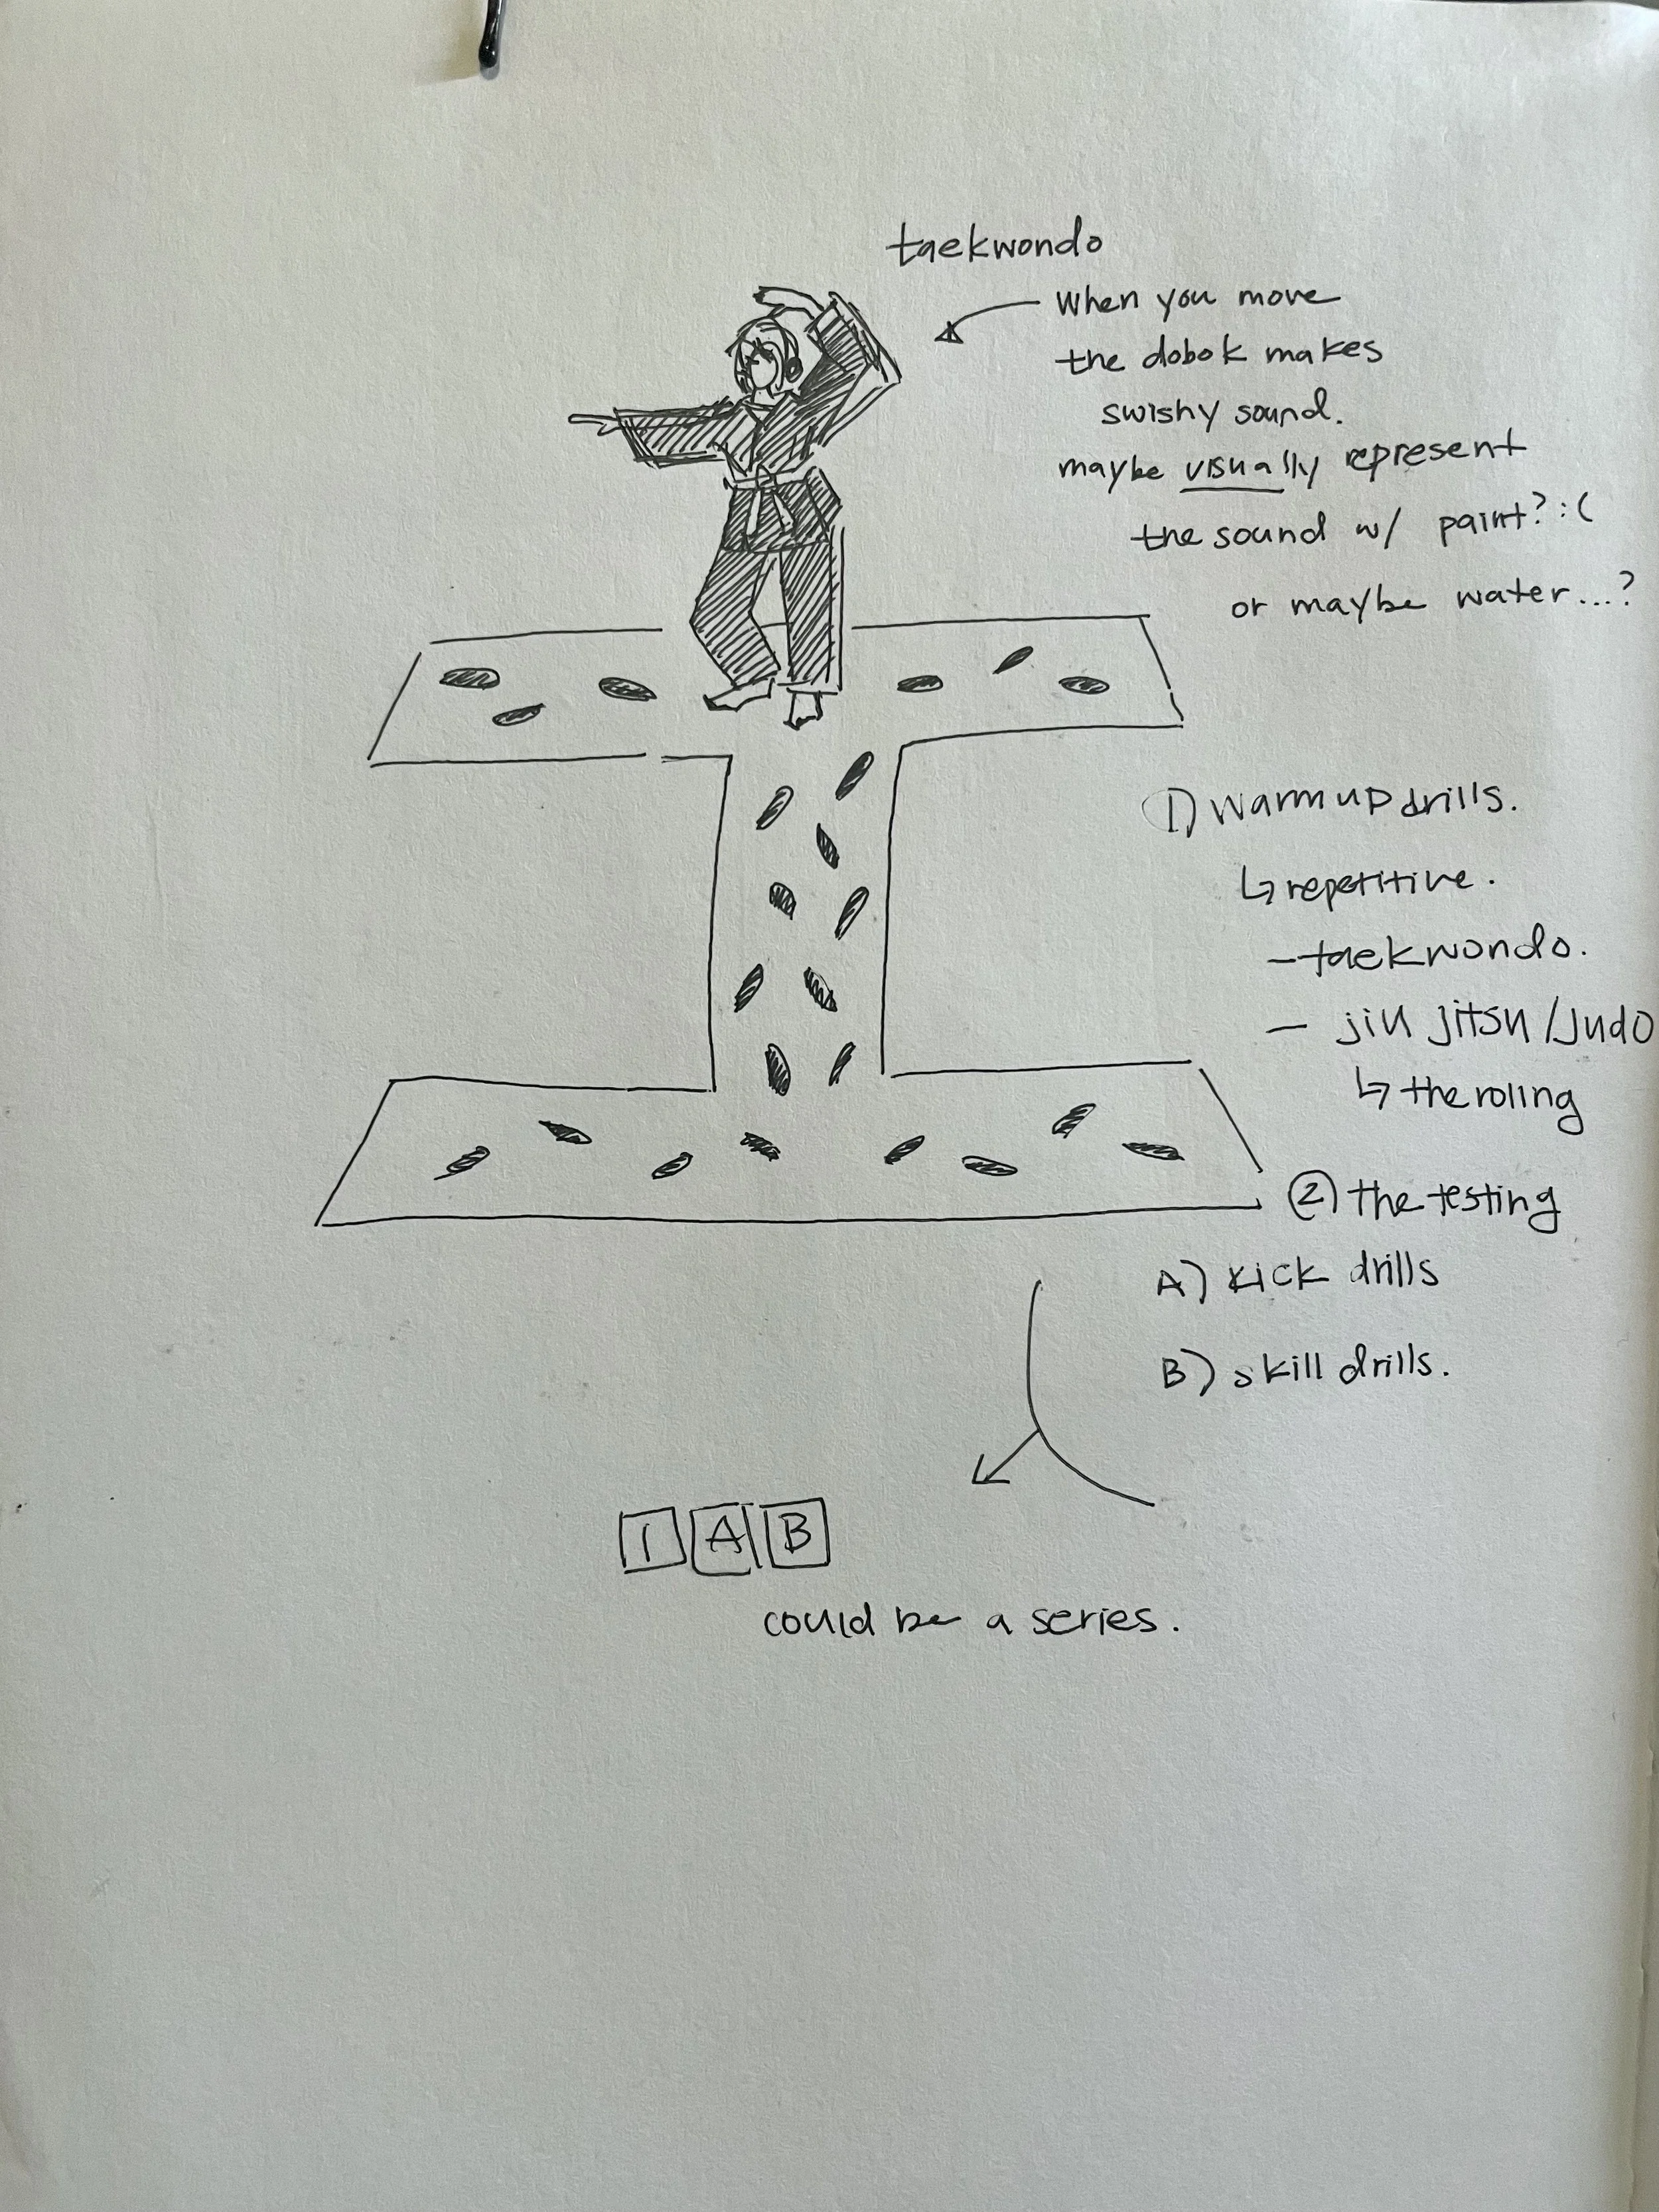 taekwondo
when you move
the dobok makes
swishy sound.
maybe visually represent
the sound w/ paint? :(
or maybe water...?
1) warm up drills.
↳ repetitive.
- taekwondo.
- jiu jitsu / judo
↳ the roling
② the testing
A) kick drills
B) skill drills.
1 A B
could be a series.